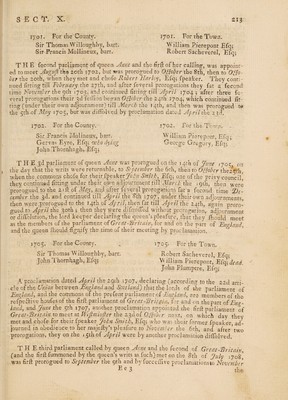 SECT. X. 213
1701. For the County. 1701. For the Town.
Sir Thomas Willoughby, bart. William Pierepont Esq;
Sir Francis Mollineux, bart. Robert Sacheverel, Esq;
THE second parliament of queen Anne and the first of her calling, was appoint-
ed to meet August the 20th 1702, but was prorogued to October the 8th, then to Octo-
ber the 20th, when they met and chose Robert Harley, Esq; Speaker. They conti-
nued sitting till February the 27th, and after several prorogations they sat a second
time November the 9th 1703, and continued sitting till April 1704; after three se-
veral prorogations their 3d session began October the 24th 1704, which continued sit-
ting under their own adjournment till March the 14th, and then was prorogued to
the 9th of May 1705, but was dissolved by proclamation dated April the 23d.
1702. For the County. 1702. For the Town.
Sir Francis Mollineux, bart. William Pierepont, Esq;
Gervas Eyre, Esq; vide dying George Gregory, Esq;
John Thornhagh, Esq;
THE 3d parliament of queen Anne was prorogued on the 14th of June 1705, on
the day that the writs were returnable, to September the 6th, then to October the 25th,
when the commons chose for their speaker John Smith, Esq; one of the privy council,
they continued sitting under their own adjournment till March the 19th, then were
prorogued to the 21st of May, and after several prorogations sat a second time De-
cember the 3d. and continued till April the 8th 1707, under their own adjournments,
then were prorogued to the 14th of April, then sat till April the 24th, again proro-
gued to April the 30th; then they were dissolved without prorogation, adjournment
or dissolution, the lord keeper declaring the queen's pleasure, that they should meet
as the members of the parliament of Great-Britain, for and on the part of England,
and the queen should signify the time of their meeting by proclamation.
1705. For the County. 1705. For the Town.
Sir Thomas Willoughby, bart. Robert Sacheverel, Esq;
John Thornhagh, Esq; William Pierepont, Esq; dead
John Plumptre, Esq;
A proclamation dated April the 29th 1707, declaring (according to the 22d arti-
cle of the Union between England and Scotland) that the lords of the parliament of
England, and the commons of the present parliament of England, are members of the
respective houses of the first parliament of Great-Britain, for and on the part of Eng-
land, and June the 5th 1707, another proclamation appointed the first parliament of
Great-Britain to meet at Westminster the 23d of October next, on which day they
met and chose for their speaker John Smith, Esq; who was their former speaker, ad-
journed in obedience to her majesty's pleasure to November the 6th, and after two
prorogations, they on the 15th of April were by another proclamation dissolved.
THE third parliament called by queen Anne and the second of Great-Britain,
(and the first summoned by the queen's writ as such) met on the 8th of July 1708,
was first prorogued to September the 9th and by successive proclamations to November
E e 3 the